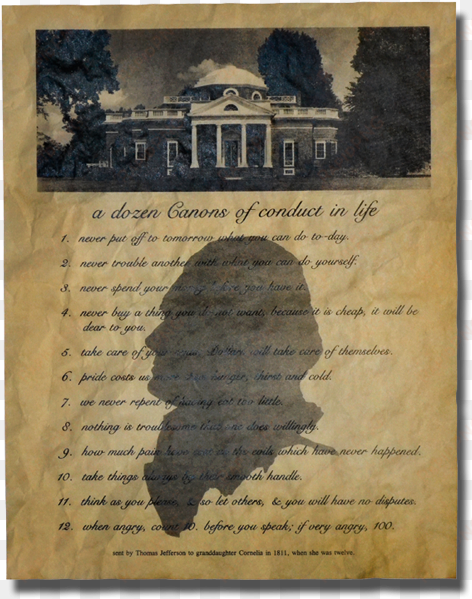 a dozen Canons of conduct in life
1. never put off to tomorrow what you can do to-day.
2. never trouble another with what you can do yourself.
3. never spend your money before you have it.
4. never buy a thing you do not want, because it is cheap, it will be
dear to you.
5. take care of your Dollars will take care of themselves.
6. pride costs us more than hunger, thirst and cold.
7. we never repent of having eat too little.
8. nothing is troublesome that one does willingly.
9. how much pain have cost us the evils which have never happened.
10. take things always by their smooth handle.
11. think as you please, & so let others, & you will have no disputes.
12. when angry, count 10. before you speak; if very angry, 100.
sent by Thomas Jefferson to granddaughter Cornelia in 1811, when she was twelve.